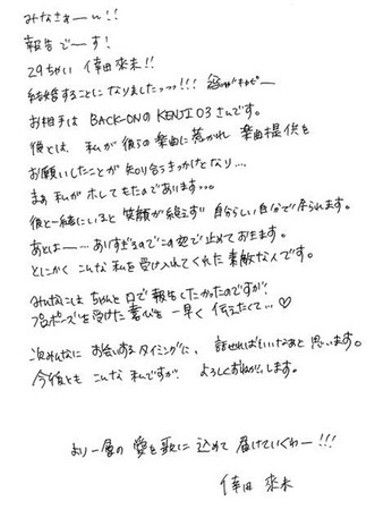 みなさぁーん!!
報告でーす!
29ちゃい 倖田來未!!
結婚することになりましたっっっ!!!
お相手は BACK-ONのKENJI03さんです。
彼とは、私が彼らの楽曲に惹かれ 楽曲提供を
お願いしたことが知り合うきっかけとなり...
まぁ私がホレてもたのであります...
彼と一緒にいると笑顔が絶えず 自分らしい自分で居られます。
あとはー...ありすぎるのでこの辺で止めておきます。
とにかくこんな私を受け入れてくれた素敵な人です。
みんなにはちゃんと口で報告したかったのですが!
プロポーズを受けた喜びを一早く伝えたくて...♡
次みんなに お会いするタイミングに、話せればいいなぁと思います。
今後とも こんな私ですが よろしくおねがいします。
より一層の 愛を歌に込めて 届けていくわー!!!
倖田 來未